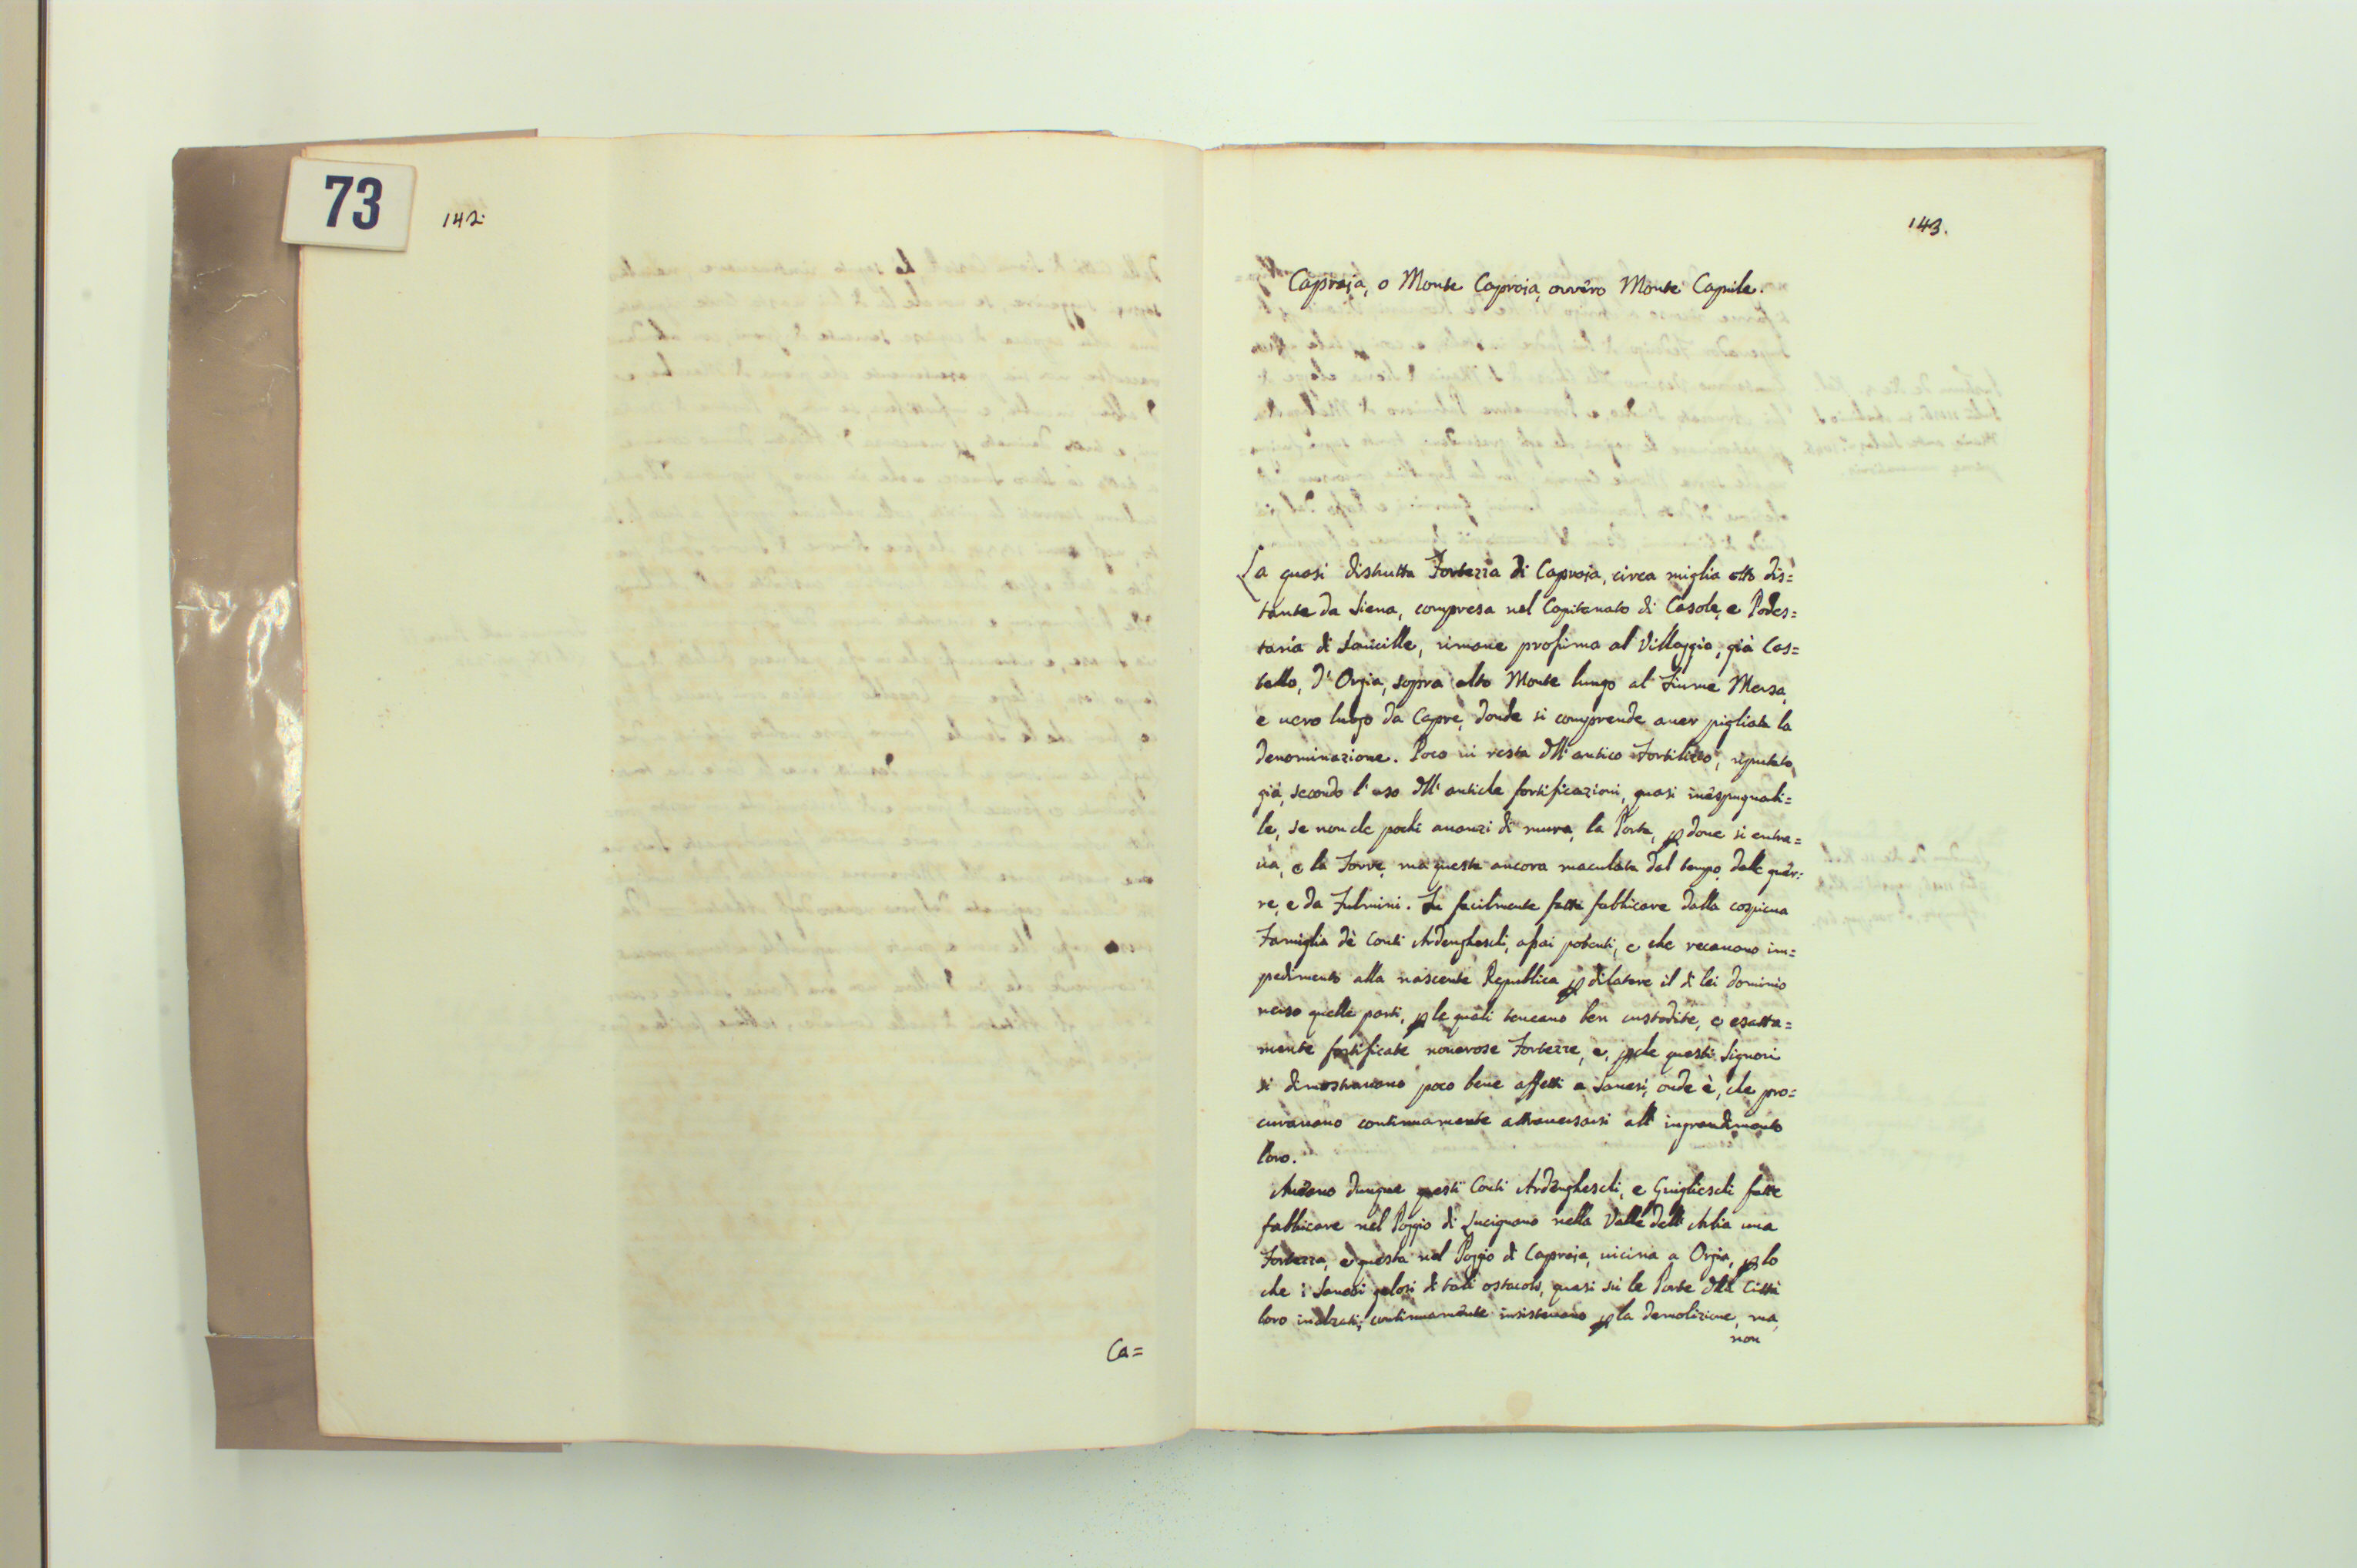 73
142.
Ca=
143.
Capraja, o Monte Capraia, ovvero Monte Caprile.
La quasi distrutta Fortezza di Capraja, circa miglia otto dis=
tante da Siena, compresa nel Capitanato di Casole, e Podes=
taria di Sovicille, rimane prossima al Villaggio, già Cas=
tello, d'Orgia, sopra alto Monte lungo al Fiume Mersa,
e vero luogo da Capre, donde si comprende aver pigliata la
denominazione. Poco vi resta dell'antico Fortilizio, reputato,
già, secondo l'uso dell'antiche fortificazioni, quasi inespugnabi=
le, se non che pochi avanzi di mura, la Porta, p dove si entra=
va, e la Torre, ma questa ancora maculata dal tempo, dalle guer=
re, e da Fulmini. Fu facilmente fatta fabbricare dalla cospicua
Famiglia dè Conti Ardengheschi, assai potenti, e che recavano im=
pedimento alla nascente Republica p dilatare il di lei dominio
verso quelle parti, p le quali teneano ben custodite, e esatta=
mente fortificate numerose Fortezze, e, pche questi Signori
si dimostravano poco bene affetti a Sanesi, onde è, che pro=
curavano continuamente attraversarsi all'ingrandimento
loro.
Aveano dunque questi Conti Ardengheschi, e Guiglieschi fatte
fabbricare nel Poggio di Lucignano nella Valle dell'Arbia una
Fortezza, e questa nel Poggio di Capraja, vicina a Orgia, p lo
che i Sanesi gelosi di tali ostacoli, quasi sù le Porte della Città
loro inalzati, continuamente insistevano p la demolizione, ma,
non